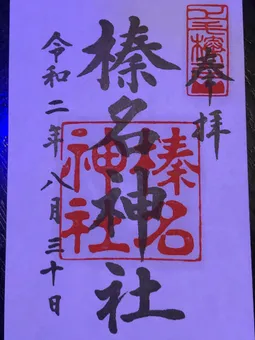 奉拝
榛名神社
榛名
神社
令和二年八月三十日